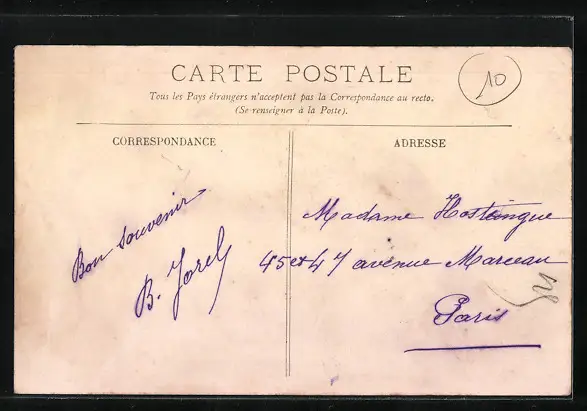 CARTE POSTALE
10
Tous les Pays étrangers n'acceptent pas la Correspondance au recto.
(Se renseigner à la Poste).
CORRESPONDANCE
Bon souvenir
B. Jorel
ADRESSE
Madame Hostingue
45 et 47 avenue Marceau
Paris